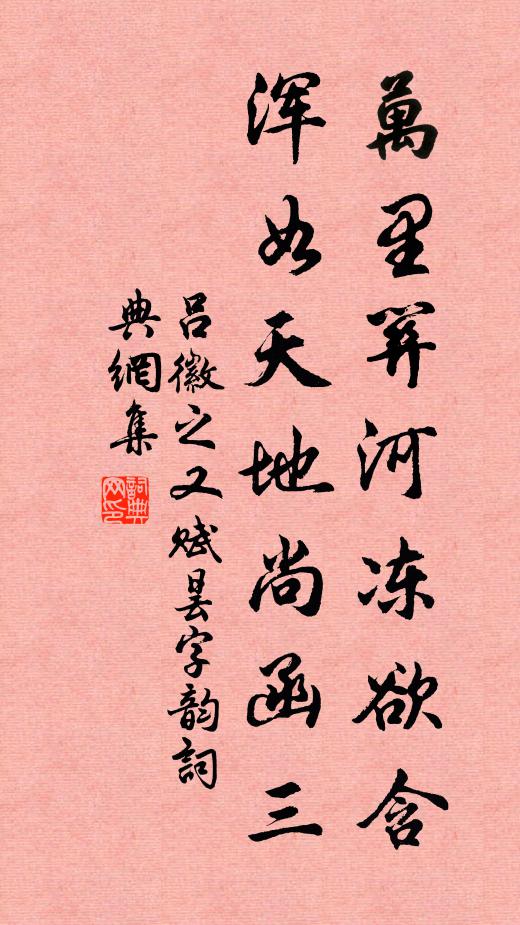 萬里關河冻欲含
浑如天地尚函三
吕徽之又赋昙字韵詞
典網集
詞典网印